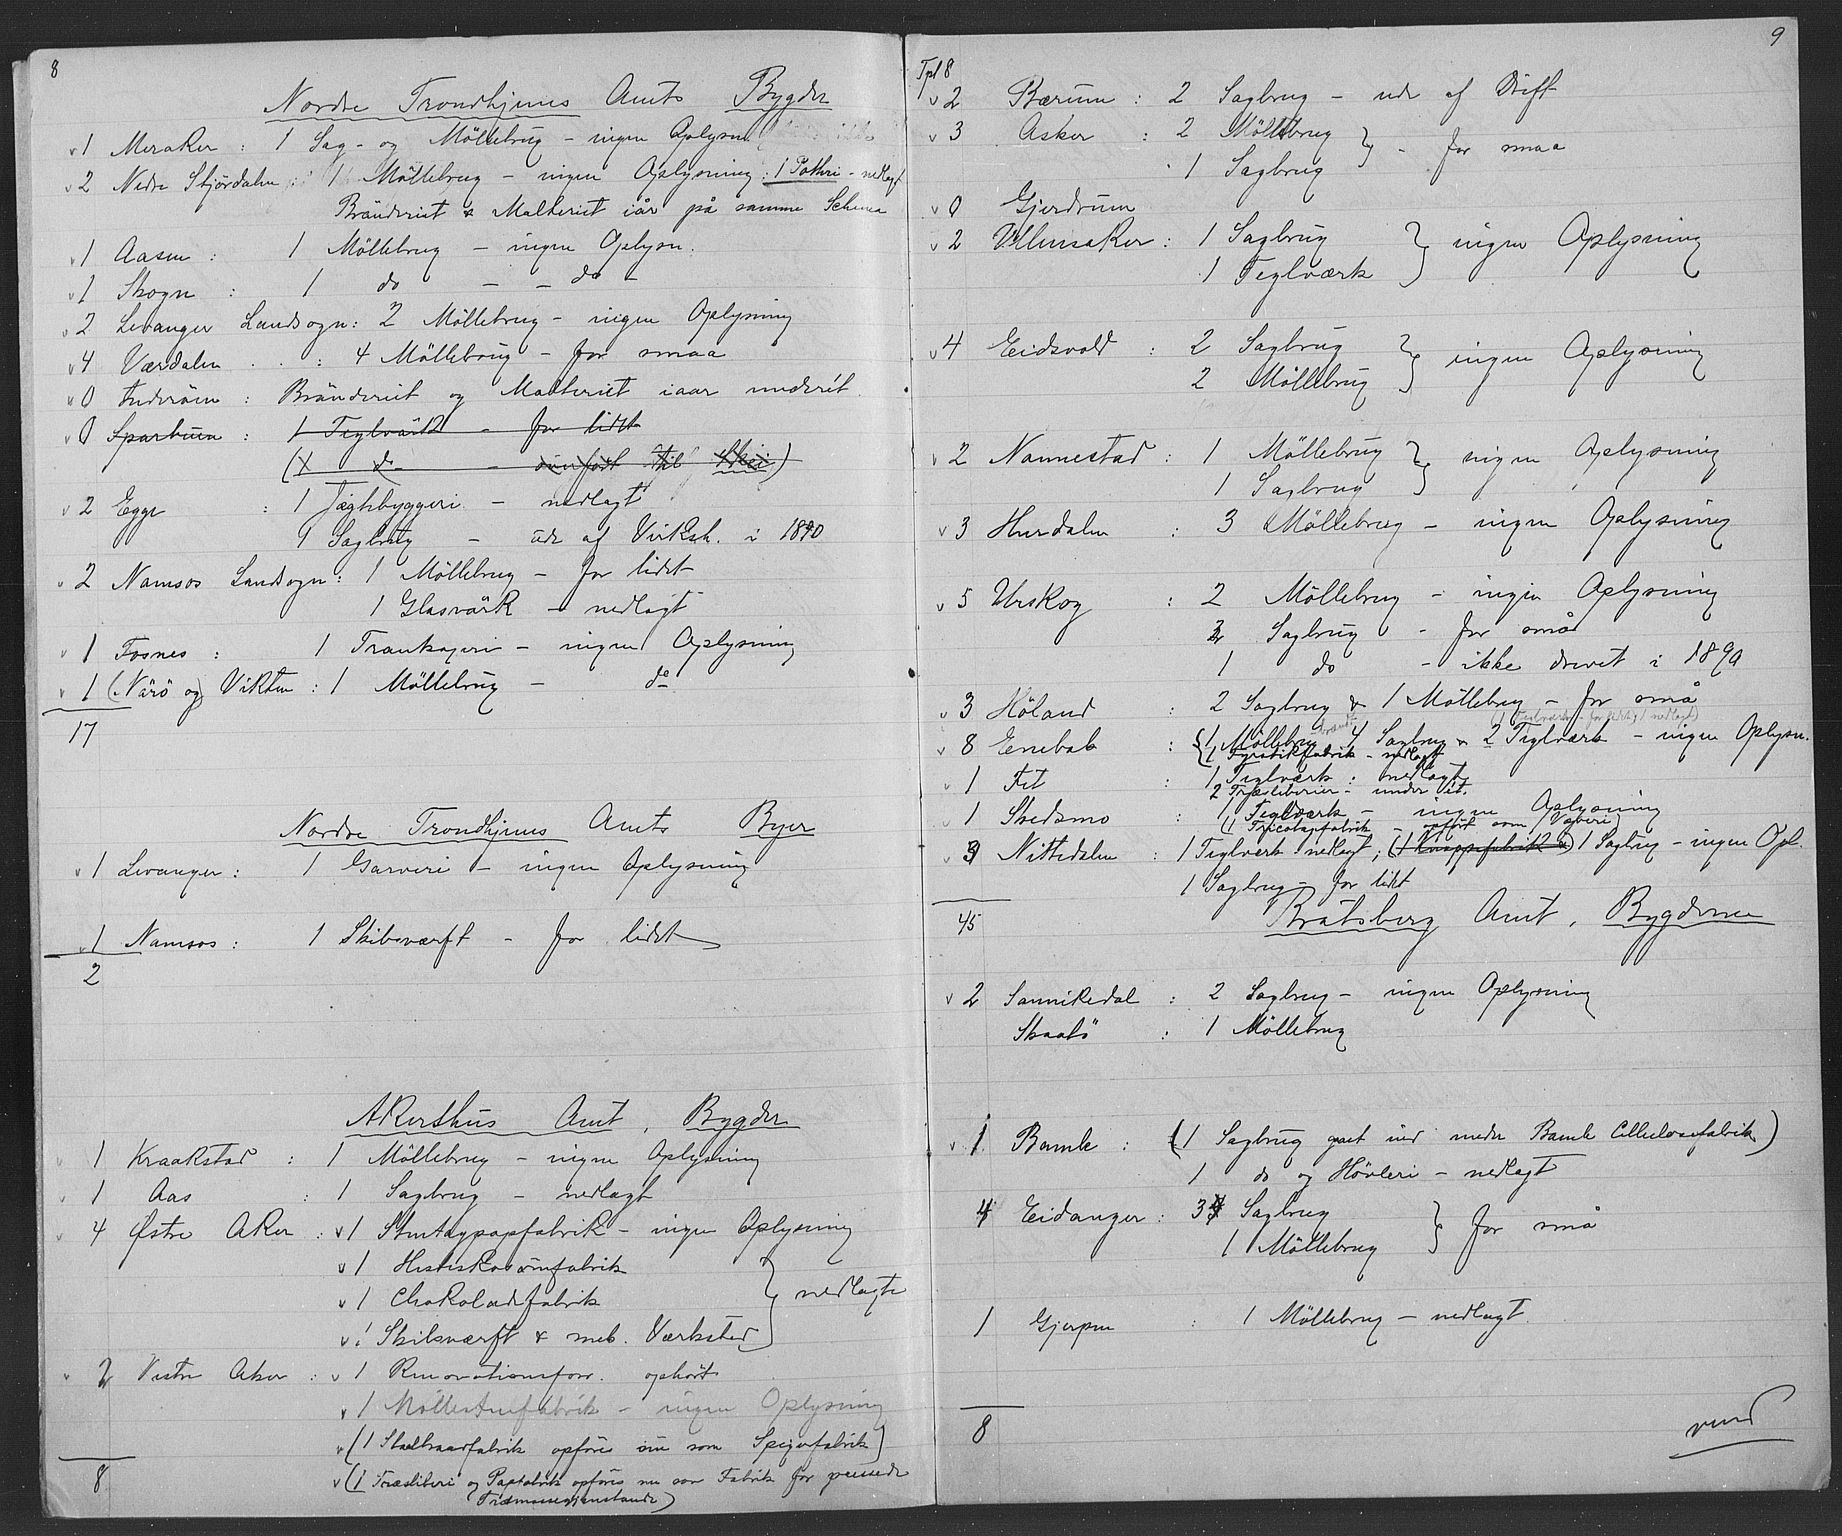 8
Nordre Trondhjems Amts Bygder
v 1 Meraker : 1 Sag- og Möllebrug - ingen Oplysn
v 2 Nedre Stjördalen : 1 Möllebrug - ingen Oplysning : 1 Potteri - nedlagt
Bränderiet & Malteriet iår på samme Schema
v 1 Aasen : 1 Möllebrug - ingen Oplysn.
v 1 Skogn : 1 do - - do -
v 2 Levanger Landsogn : 2 Möllebrug - ingen Oplysning
v 4 Værdalen . . : 4 Möllebrug - for smaa
v 0 Inderöen : Bränderiet og Malteriet iaar under ét.
v 0 Sparbuen : 1 Teglvärk - for lidet
(1 do - overfört til Skei)
v 2 Egge : 1 Jægtebyggeri - nedlagt
1 Sagbrug - ude af Virksh. i 1890
v 2 Namsos Landsogn : 1 Möllebrug - for lidet
1 Glasvärk - nedlagt
v 1 Fosnes : 1 Trankogeri - ingen Oplysning
v 1 (Närö og) Vikten : 1 Möllebrug - do
17
Nordre Trondhjems Amts Byer
v 1 Levanger : 1 Garveri - ingen Oplysning
v 1 Namsos : 1 Skibsværft - for lidet
2
Akershus Amt, Bygder
v 1 Kraakstad : 1 Möllebrug - ingen Oplysning
v 1 Aas : 1 Sagbrug - nedlagt
v 4 Østre Aker : v 1 Stentøypapfabrik - ingen Oplysning
v 1 Hesteskosömfabrik
v 1 Chokoladefabrik } nedlagte
v 1 Skibsværft & mek. Værksted
v 2 Vestre Aker : v 1 Renovationsforr. ophört
v 1 Möllestenfabrik - ingen Oplysning
v (1 Staaltraadfabrik opföres nu som Spigerfabrik)
v (1 Træsliberi og Papfabrik opföres nu som Fabrik for pressede
Trämassegjenstande)
8
9
Tpl 8
v 2 Bærum : 2 Sagbrug - ude af Drift
v 3 Asker : 2 Möllebrug
1 Sagbrug } - for smaa
v 0 Gjerdrum
v 2 Ullensaker : 1 Sagbrug
1 Teglværk } ingen Oplysning
v 4 Eidsvold : 2 Sagbrug
2 Möllebrug } ingen Oplysning
v 2 Nannestad : 1 Möllebrug
1 Sagbrug } ingen Oplysning
v 3 Hurdalen : 3 Möllebrug - ingen Oplysning
v 5 Urskog : 2 Möllebrug - ingen Oplysning
2 Sagbrug - for små
1 do - ikke drevet i 1890
v 3 Höland : 2 Sagbrug & 1 Möllebrug - for små
(1 Teglværk - for lidet, 1 nedlagt)
v 8 Enebak : { 1 Möllebrug 4 Sagbrug & 2 Teglværk - ingen Oplysn.
1 Fyrstikfabrik - nedlagt
v 1 Fet : 1 Teglværk : nedlagt
2 Træsliberier - under ét.
v 1 Skedsmo : 1 Teglværk - ingen Oplysning
(1 Tricotagefabrik - opfört som Væveri
v 3 Nittedalen : 1 Teglværk nedlagt, (1 Knappefabrik &) 1 Sagbrug - ingen Opl.
1 Sagbrug - for lidet
45
Bratsberg Amt, Bygderne
v 2 Sannikedal : 2 Sagbrug - ingen Oplysning
Skaatö : 1 Möllebrug
v 1 Bamle : (1 Sagbrug gaet ind under Bamle Cellulosefabrik)
1 do og Hövleri - nedlagt
4 Eidanger : 3 Sagbrug
1 Möllebrug } for små
1 Gjerpen : 1 Möllebrug - nedlagt.
8
vend